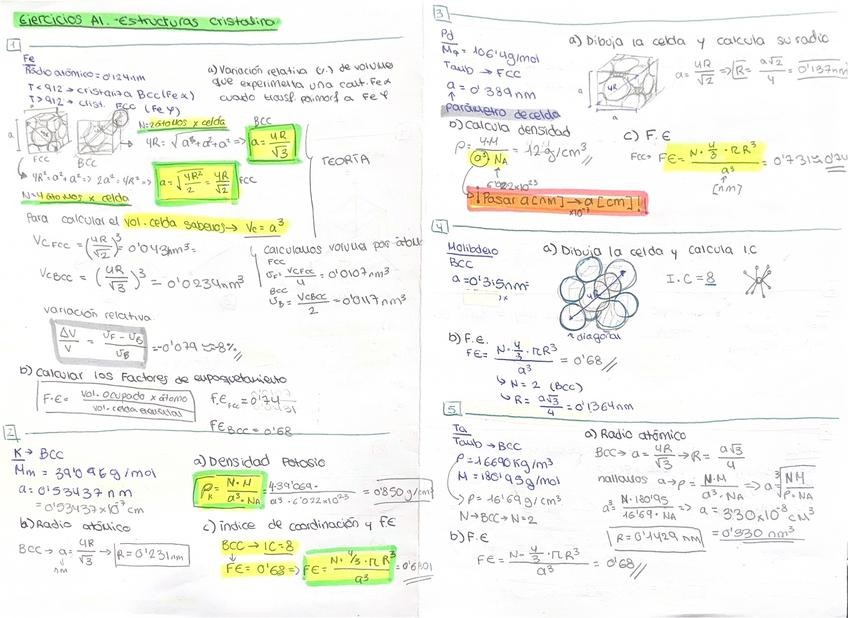 Ejercicios A1. -Estructuras cristalina
1
Fe
Radio atómico = 0'124nm
T<912 → cristaliza BCC (Fe α)
T>912 → crist. FCC (Fe γ)
a) Variación relativa (%) de volumen
que experimenta una cant. Fe α
cuando transf. polimorf. a Fe γ
N=2 átomos x celda
BCC
a
FCC
BCC
4R = √a²+a²+a² ⇒ a = 4R/√3
4R² = a²+a² ⇒ 2a² = 4R² ⇒ a = √4R²/2 = 4R/√2 FCC
N=4 átomos x celda
TEORÍA
Para calcular el vol. celda sabemos → Vc = a³
VC FCC = (4R/√2)³ = 0'043nm³
VC BCC = (4R/√3)³ = 0'0234nm³
Calculamos volumen por átomo
FCC
VF = VC FCC/4 = 0'0107nm³
BCC
VB = VC BCC/2 = 0'0117nm³
variación relativa
ΔV/V = VF - VB/VB = -0'079 ≈ -8%
b) Calcular los Factores de empaquetamiento
F.E = vol. ocupado x átomo/vol. celda
F.E FCC = 0'74
FE BCC = 0'68
2
K → BCC
Mm = 39'096g/mol
a = 0'53437 nm
= 0'53437x10⁻⁷ cm
a) Densidad Potasio
ρK = N·M/a³·NA = = 0'850 g/cm³
b) Radio atómico
BCC → a = 4R/√3 → R = 0'231nm
nm
c) índice de coordinación y FE
BCC → IC = 8
FE = 0'68 ⇒ FE = N·4/3·πR³/a³
3
Pd
Ma = 106'4g/mol
Taub → FCC
a = 0'389nm
parámetro de celda
a) Dibuja la celda y calcula su radio
a
4R
a = 4R/√2 ⇒ R = a√2/4 = 0'137nm
b) Calcula densidad
ρ = 4·M/a³ NA = 12 g/cm³
6'022x10²³
¡Pasar a[nm] → a [cm]!
c) F.E
FCC → FE = N·4/3·πR³/a³
[nm]
4
Molibdeno
BCC
a = 0'315nm
a) Dibuja la celda y calcula I.C
4R
diagonal
I.C = 8
b) F.E.
FE = N·4/3·πR³/a³ = 0'68
↳ N = 2 (BCC)
↳ R = a√3/4 = 0'1364nm
5
Ta
Taub → BCC
ρ = 16690 Kg/m³
M = 180'95g/mol
↳ ρ = 16'69g/cm³
N → BCC → N=2
a) Radio atómico
BCC → a = 4R/√3 → R = a√3/4
hallamos a → ρ = N·M/a³·NA ⇒ a = ³√NM/ρ·NA
a³ = N·180'95/16'69·NA ⇒ a = 3'30x10⁻⁸ cm³
R = 0'1429 nm = 0'330 nm³
b) F.E
FE = N·4/3·πR³/a³ = 0'68